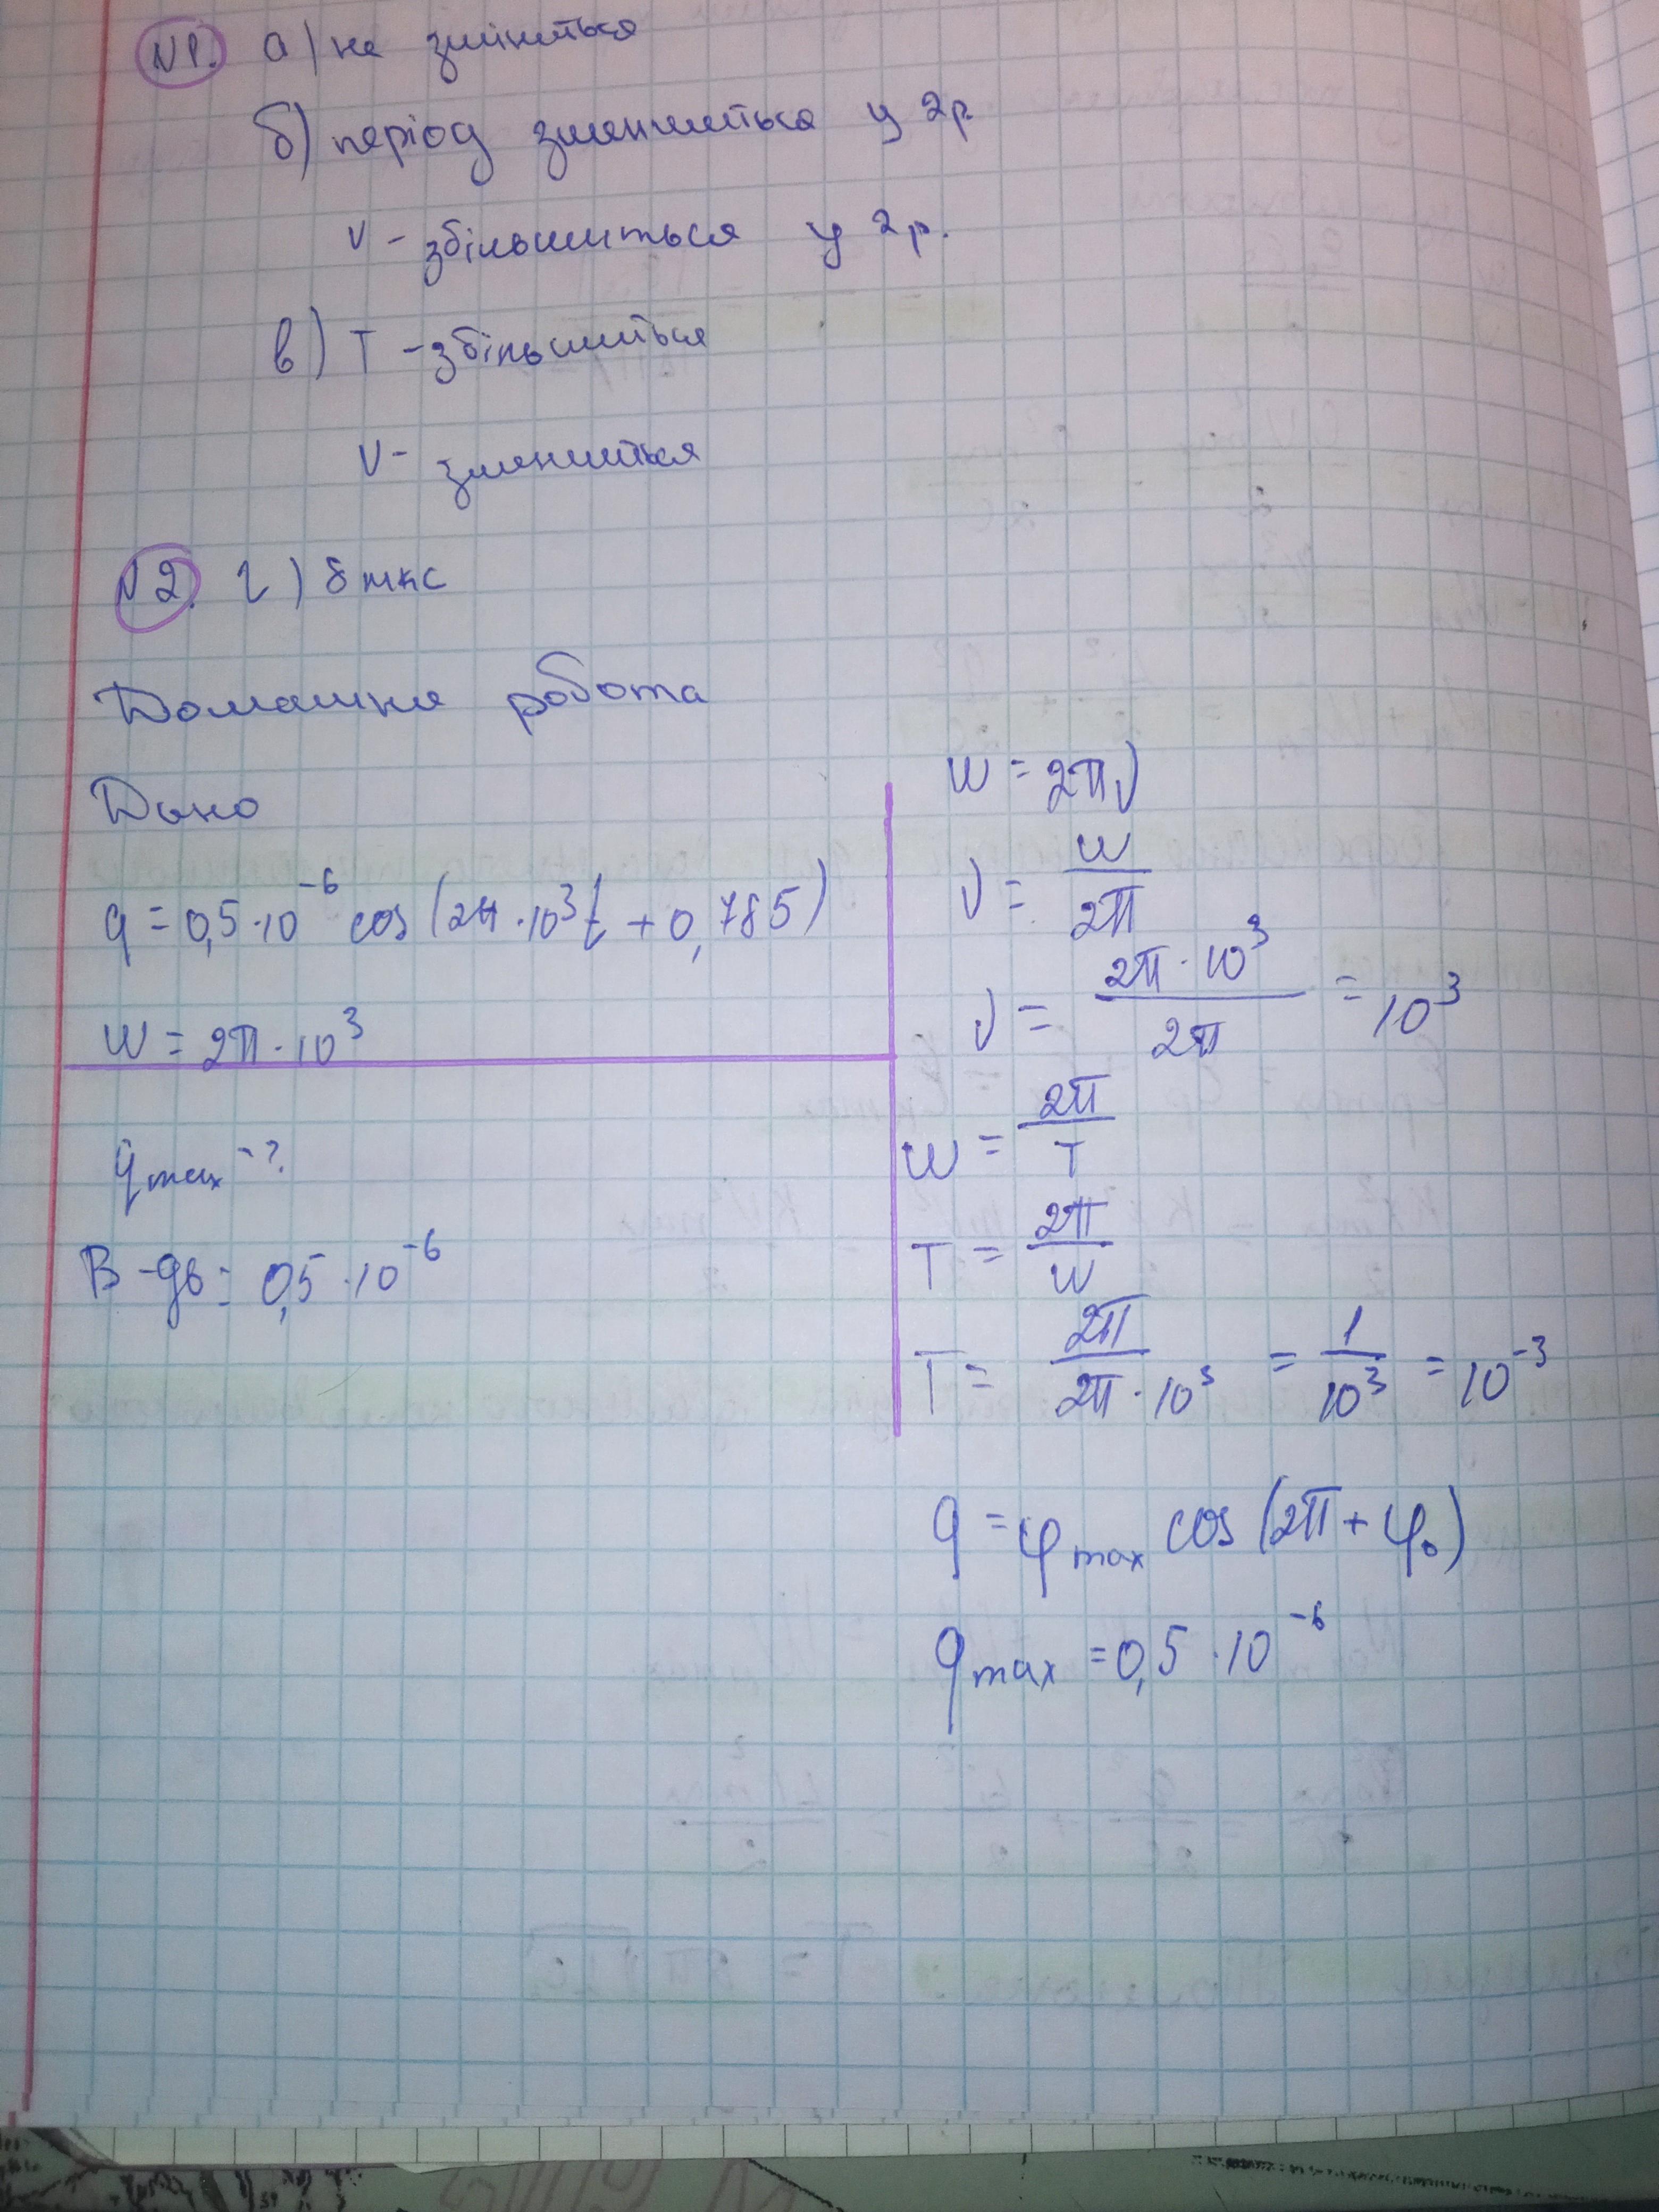 №1. а) не зміниться
б) період зменшиться у 2р.
ν - збільшиться у 2р.
в) Т - збільшиться
ν - зменшиться
№2. г) 8 мкс
Домашня робота
Дано
q = 0,5·10⁻⁶ cos(2π·10³t + 0,785)
W = 2π·10³
qmax - ?
В-дь: 0,5·10⁻⁶
W = 2πν
ν = W/2π
ν = 2π·10³/2π = 10³
W = 2π/T
T = 2π/W
T = 2π/2π·10³ = 1/10³ = 10⁻³
q = φmax cos(2π + φ₀)
qmax = 0,5·10⁻⁶